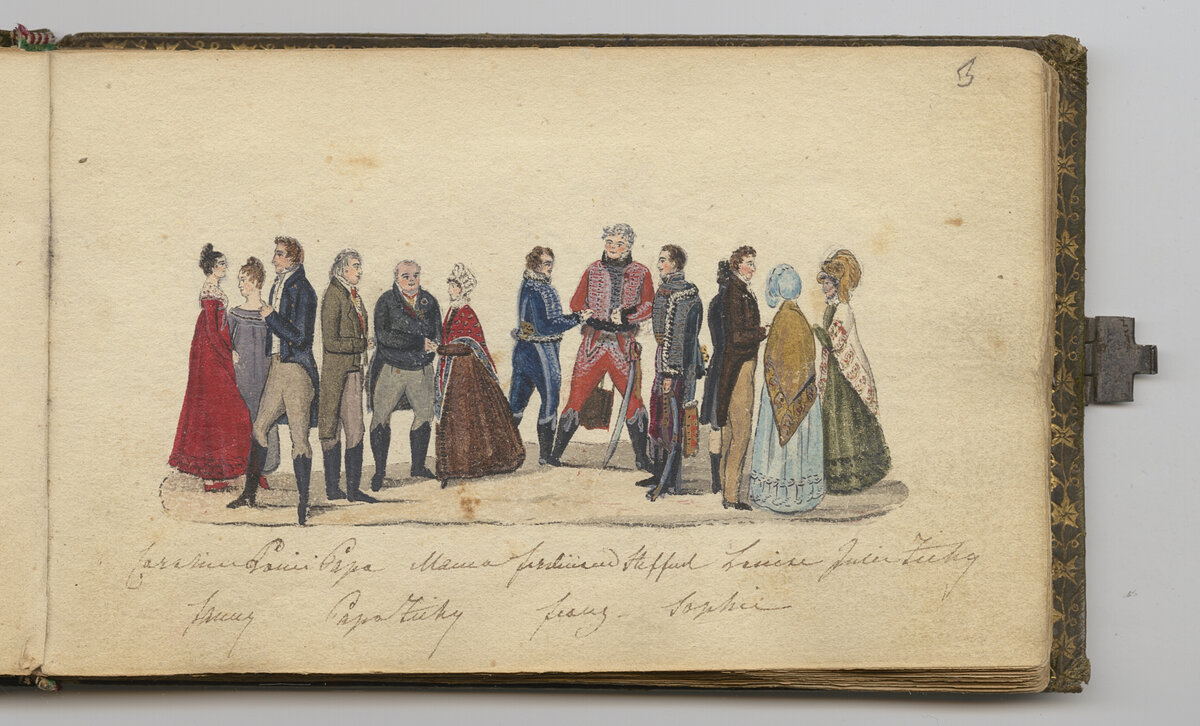 3
Caroline Louis Papa Mama ferdinand Stefferl Louise Julie Zichy
fanny Papa Zichy franz Sophie